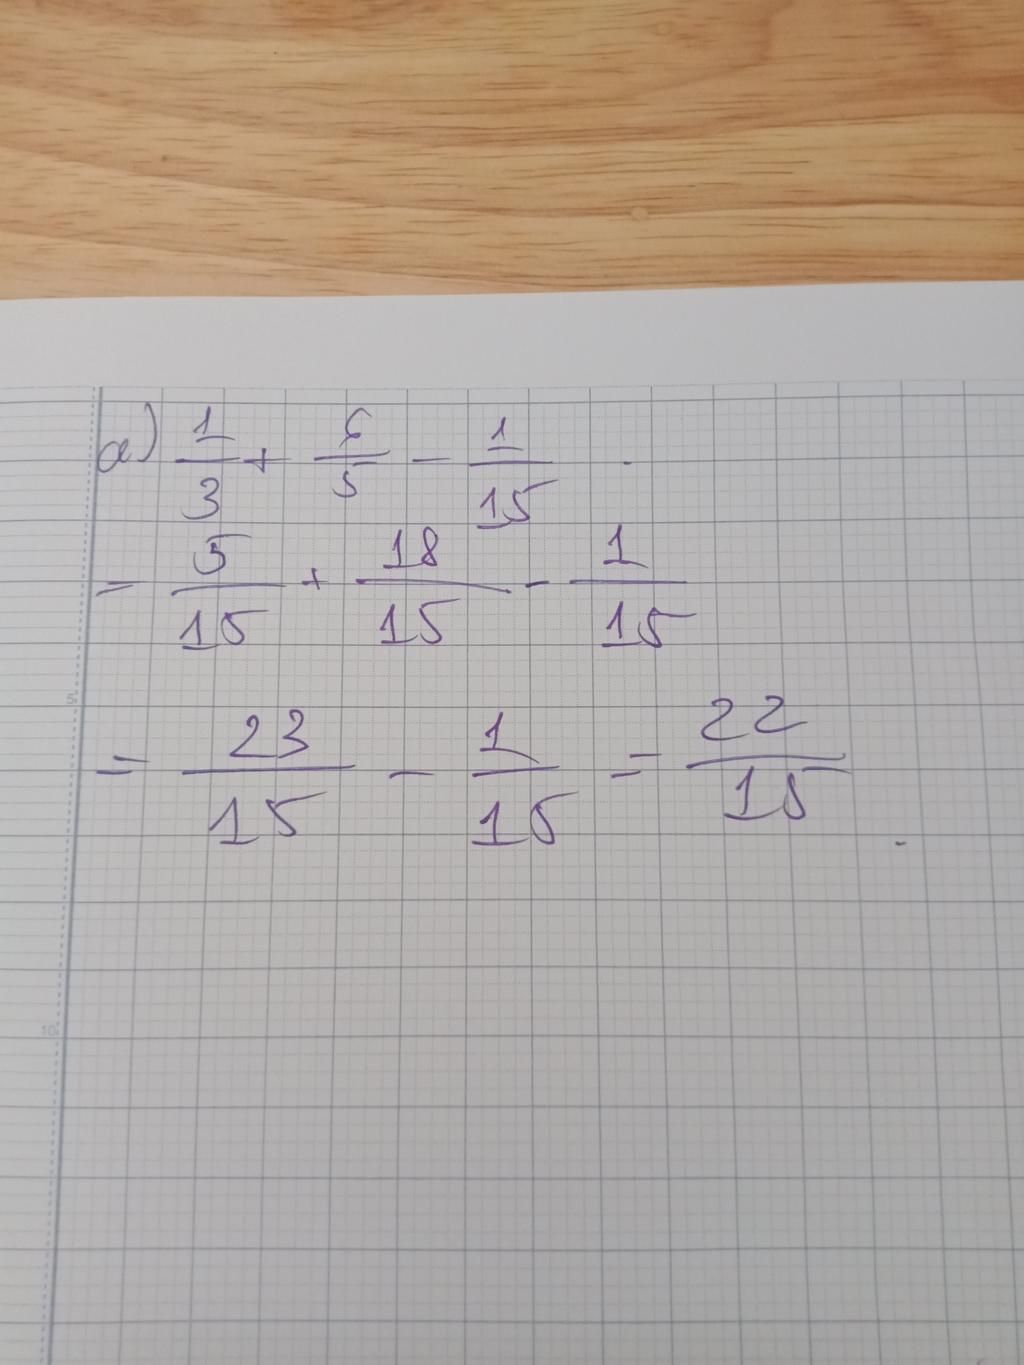 a) 1/3 + 6/5 - 1/15
= 5/15 + 18/15 - 1/15
5
= 23/15 - 1/15 = 22/15
10